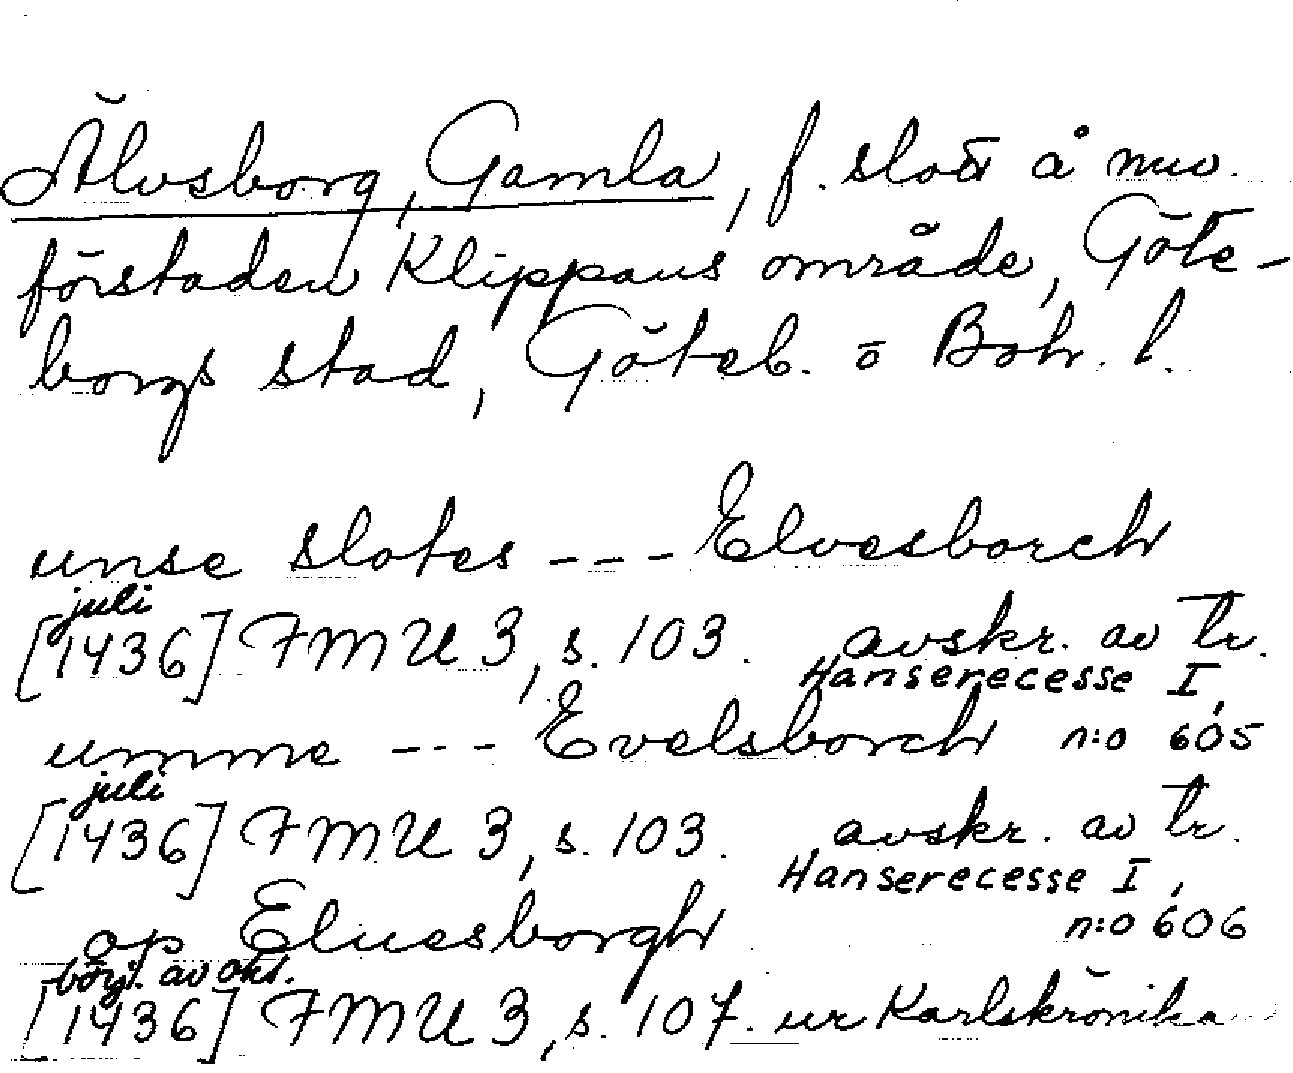 Älvsborg, Gamla, f. slott å nuv.
förstaden Klippans område, Göte-
borgs stad, Göteb. o Boh. l.
unse slotes --- Elvesborch
juli
[1436] FMU 3, s. 103. avskr. av tr.
Hanserecesse I,
umme --- Evelsborch n:o 605
juli
[1436] FMU 3, s. 103. avskr. av tr.
Hanserecesse I,
op Eluesborgh n:o 606
börj. av okt.
[1436] FMU 3, s. 107. ur Karlskrönika